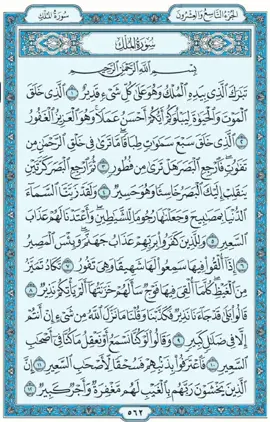 الجزء التاسع والعشرون
سورة الملك
سورة الملك
بسم الله الرحمن الرحيم
تبرك الذي بيده الملك وهو على كل شيء قدير ١ الذي خلق
الموت والحيوة ليبلوكم أيكم أحسن عملا وهو العزيز الغفور
٢ الذي خلق سبع سموت طباقا ما ترى في خلق الرحمن من
تفوت فارجع البصر هل ترى من فطور ٣ ثم ارجع البصر كرتين
ينقلب إليك البصر خاسئا وهو حسير ٤ ولقد زينا السماء
الدنيا بمصبيح وجعلنها رجوما للشيطين وأعتدنا لهم عذاب
السعير ٥ وللذين كفروا بربهم عذاب جهنم وبئس المصير
٦ إذا ألقوا فيها سمعوا لها شهيقا وهي تفور ٧ تكاد تميز
من الغيظ كلما ألقي فيها فوج سألهم خزنتها ألم يأتكم نذير ٨
قالوا بلى قد جاءنا نذير فكذبنا وقلنا ما نزل الله من شيء إن أنتم
إلا في ضلل كبير ٩ وقالوا لو كنا نسمع أو نعقل ما كنا في أصحب
السعير ١٠ فاعترفوا بذنبهم فسحقا لأصحب السعير ١١ إن
الذين يخشون ربهم بالغيب لهم مغفرة وأجر كبير ١٢
٥٦٢